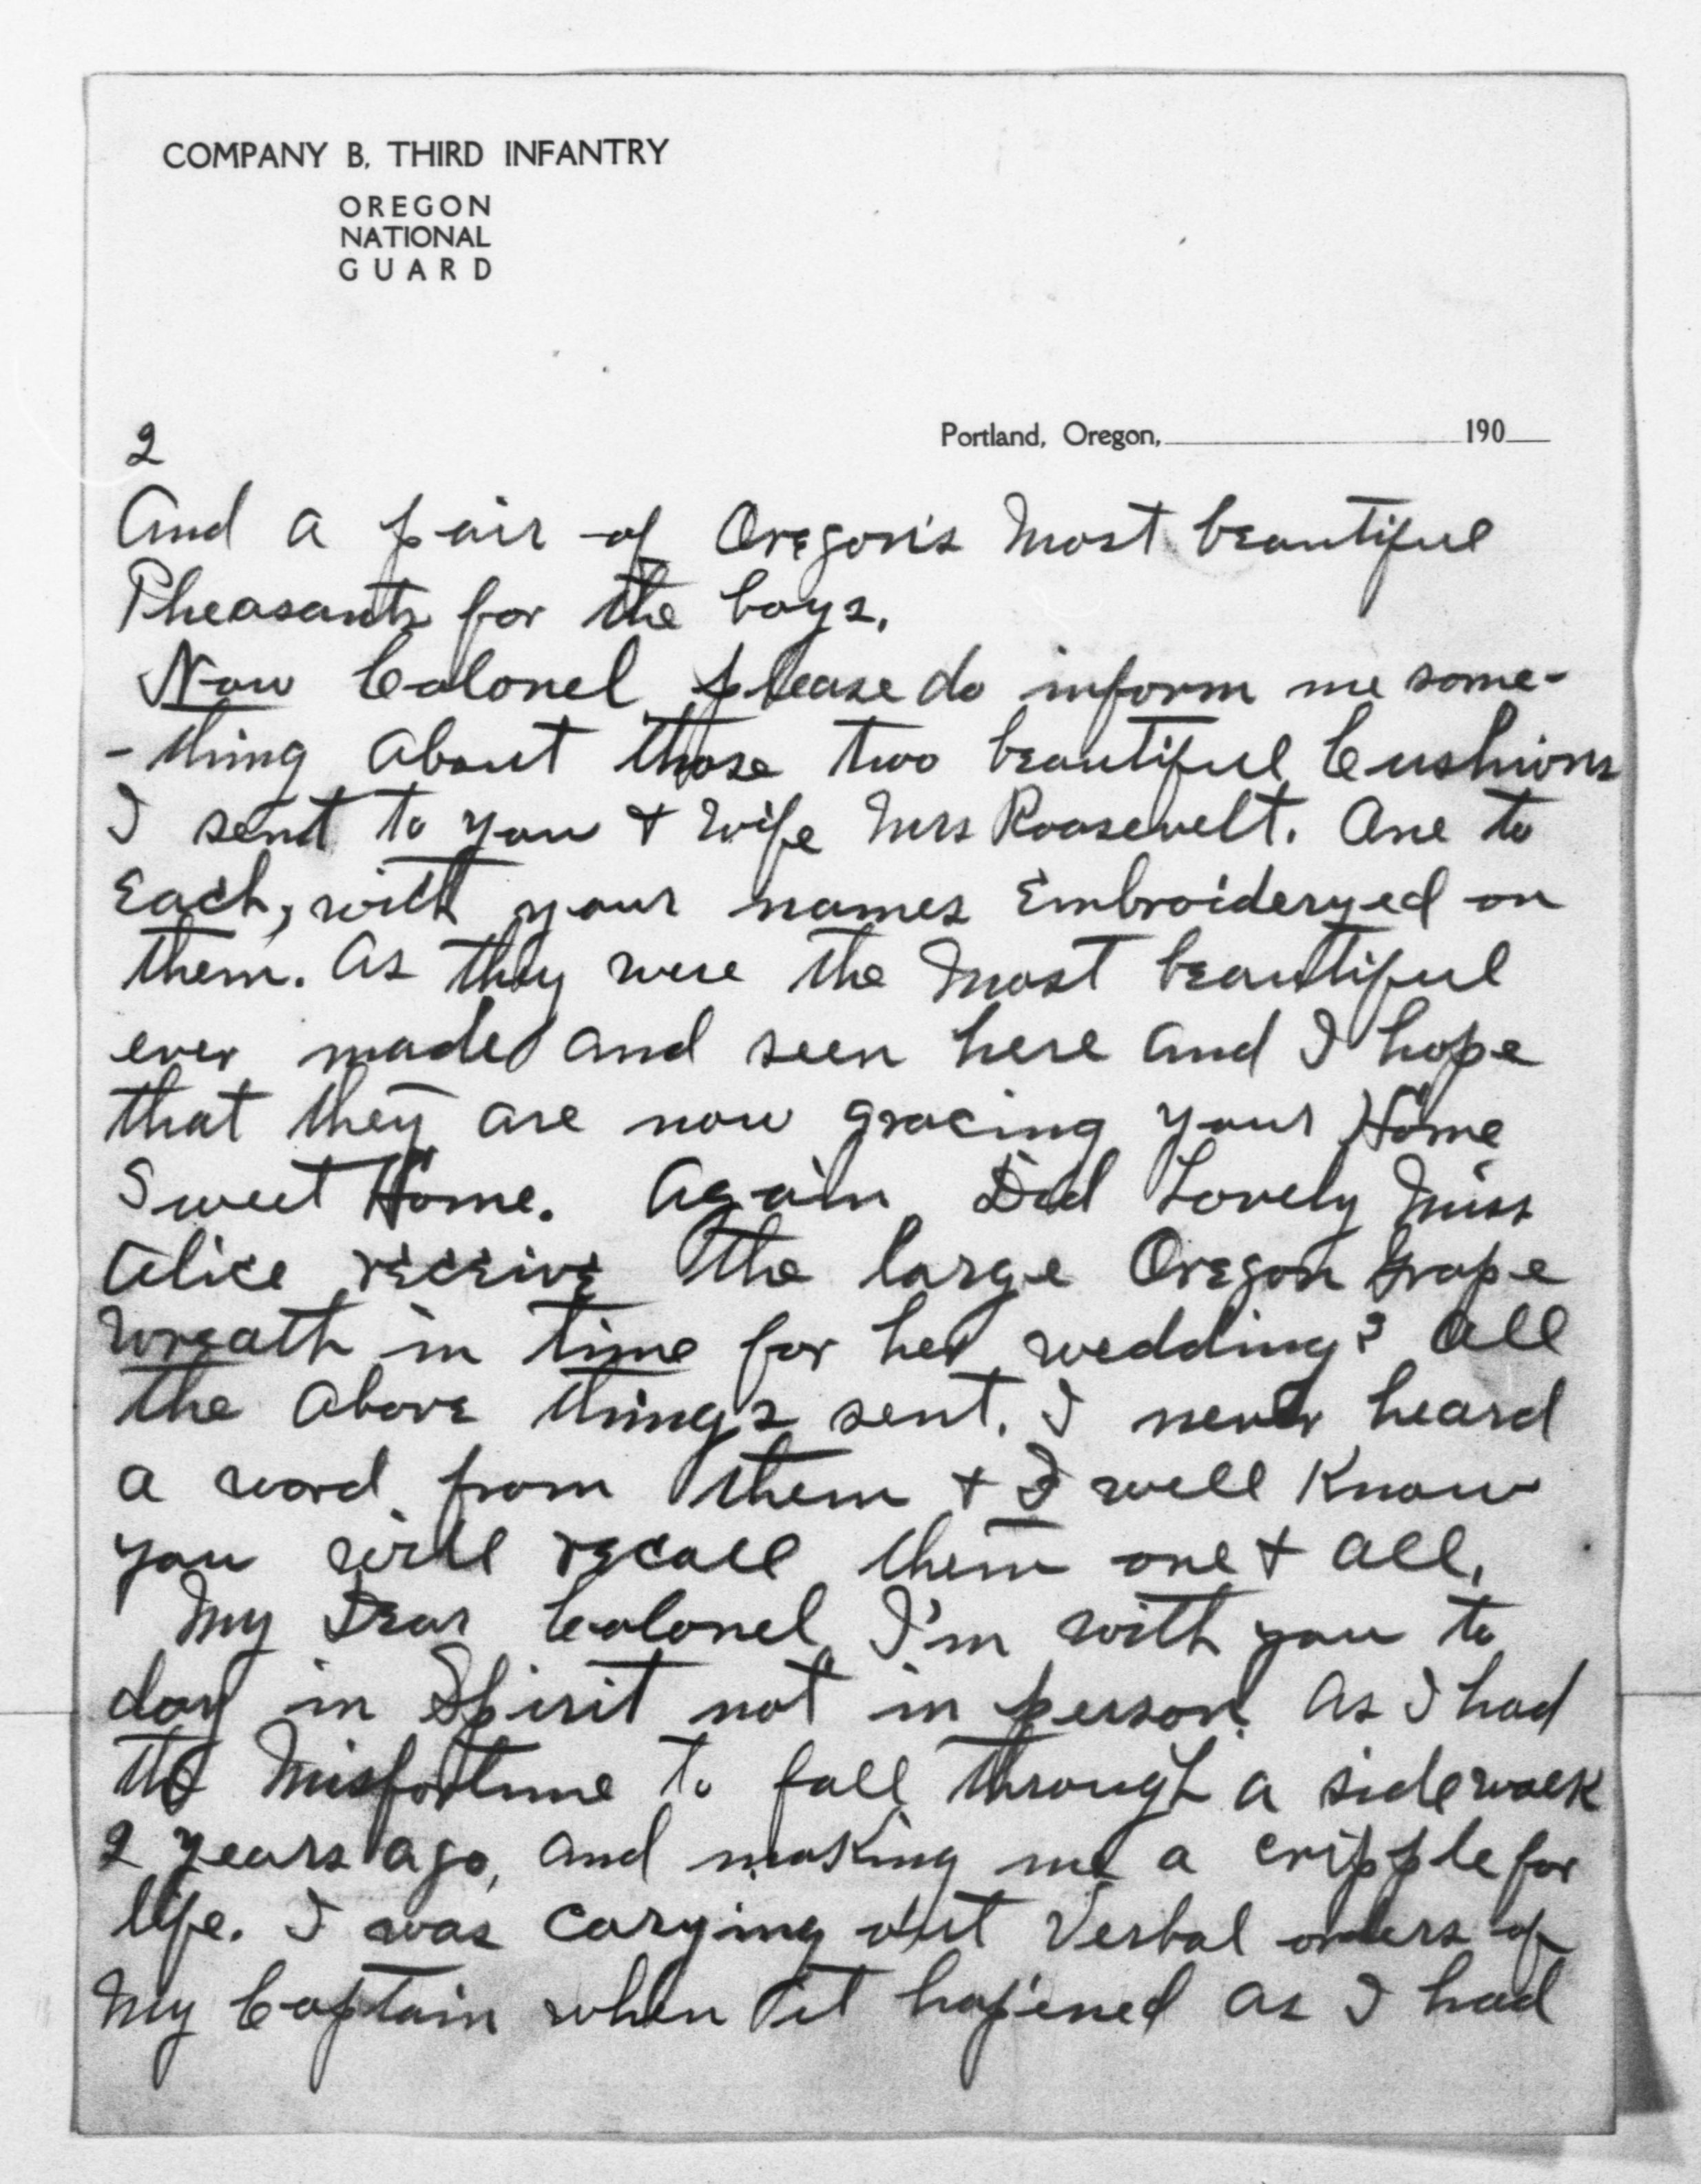 COMPANY B, THIRD INFANTRY
OREGON
NATIONAL
GUARD
Portland, Oregon, 190
2
And a pair of Oregon's Most beautiful
Pheasants for the boys.
Now Colonel please do inform me some-
-thing About those two beautiful Cushions
I sent to you + Wife Mrs Roosevelt. One to
Each, with your names Embroideryed on
them. As they were the Most beautiful
ever made and seen here and I hope
that they are now gracing your Home
Sweet Home. Again Did Lovely Miss
Alice receive the large Oregon Grape
Wreath in time for her wedding? All
the above things sent. I never heard
a word from them + I well Know
you will recall them one + all.
My Dear Colonel I'm with you to
day in Spirit not in person. As I had
the Misfortune to fall through a sidewalk
2 years ago, and making me a cripple for
life. I was carying out Verbal orders of
My Captain when it hapened as I had